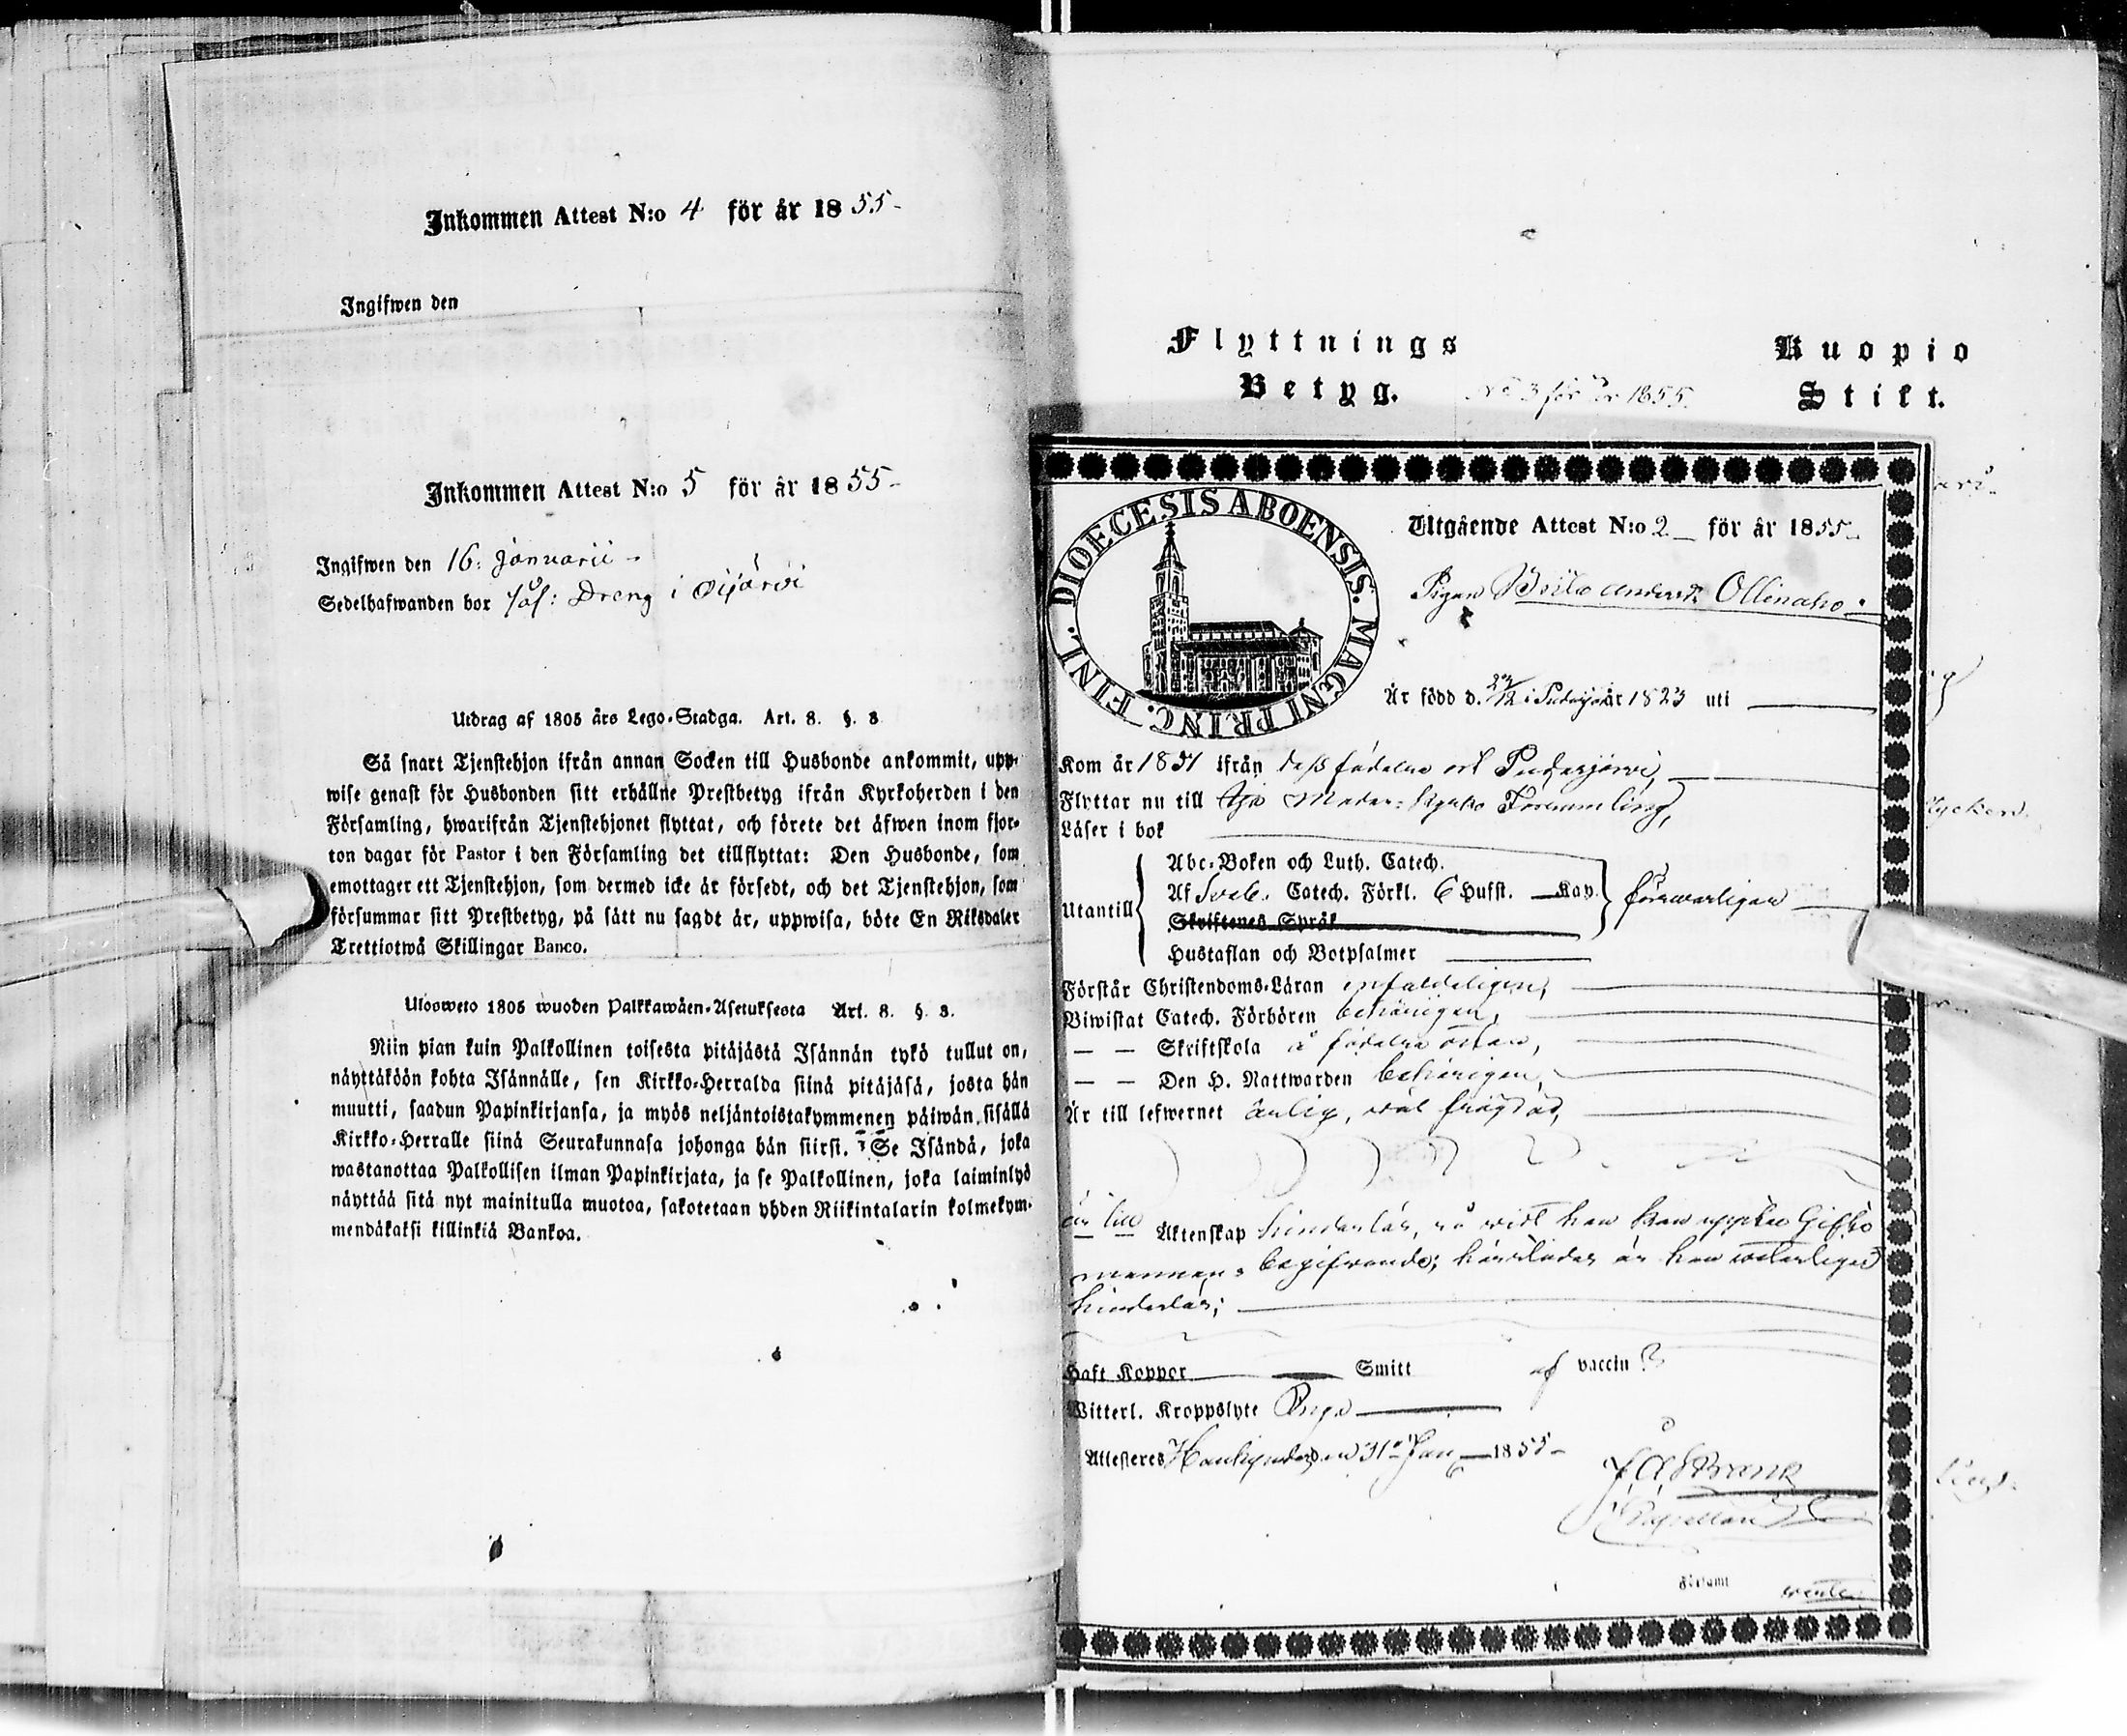 Inkommen Attest N:o 4 för år 1855-
Ingifwen den
Inkommen Attest N:o 5 för år 1855-
Ingifwen den 16. Januarii -
Sedelhafwanden bor såf: Dreng i Oijärvi
Utdrag af 1805 års Lego-Stadga. Art. 8. §. 8
Så snart Tjenstehjon ifrån annan Socken till Husbonde ankommit, upp-
wise genast för Husbonden sitt erhållne Prestbetyg ifrån Kyrkoherden i den
Församling, hwarifrån Tjenstehjonet flyttat, och förete det äfwen inom fjor-
ton dagar för Pastor i den Församling det tillflyttat: Den Husbonde, som
emottager ett Tjenstehjon, som dermed icke är försedt, och det Tjenstehjon, som
försummar sitt Prestbetyg, på sätt nu sagdt är, uppwisa, böte En Riksdaler
Trettiotwå Skillingar Banco.
Ulosweto 1805 wuoden Palkkawäen-Asetuksesta Art. 8. §. 8.
Niin pian kuin Palkollinen toisesta pitäjästä Isännän tykö tullut on,
näyttäköön kohta Isännälle, sen Kirkko-Herralda siinä pitäjäsä, josta hän
muutti, saadun Papinkirjansa, ja myös neljäntoistakymmenen päiwän sisällä
Kirkko-Herralle siinä Seurakunnasa johonga hän siirsi. Se Isändä, joka
wastanottaa Palkollisen ilman Papinkirjata, ja se Palkollinen, joka laiminlyö
näyttää sitä nyt mainitulla muotoa, sakotetaan yhden Riikintalarin kolmekym-
mendäkaksi killinkiä Bankoa.
Flyttnings
Betyg.
No 3 för år 1855.
Kuopio
Stift.
DIOECESIS ABOENSIS. MAGNI PRINC. FINL.
Utgående Attest N:o 2 för år 1855-
Pigan Brita Andersdr Ollinaho.
Är född d. i Pudasjär år 1823 uti
Kom år 1851 ifrån dess födelse ort Pudasjärvi,
Flyttar nu till Församling,
Läser i bok
Utantill
Abc-Boken och Luth. Catech.
Af Sveb. Catech. Förkl. 6 Hufst. Kap.
Skriftenes Språk
Hustaflan och Botpsalmer
försvarligen
Förstår Christendoms-Läran enfaldeligen,
Biwistat Catech. Förhören behörigen,
— — Skriftskola å födelse orten,
— — Den H. Nattwarden behörigen,
Är till lefwernet ärlig, wäl frägdad,
är till Äktenskap hinderlös, så vidt hon kan uppte Gifto
mannens begifvande; härstädes är hon veterligen
hinderlös;
Haft Koppor Smitt af vaccin
Witterl. Kroppslyte Inga
Attesteres den 31 Jan 1855-
Capellan